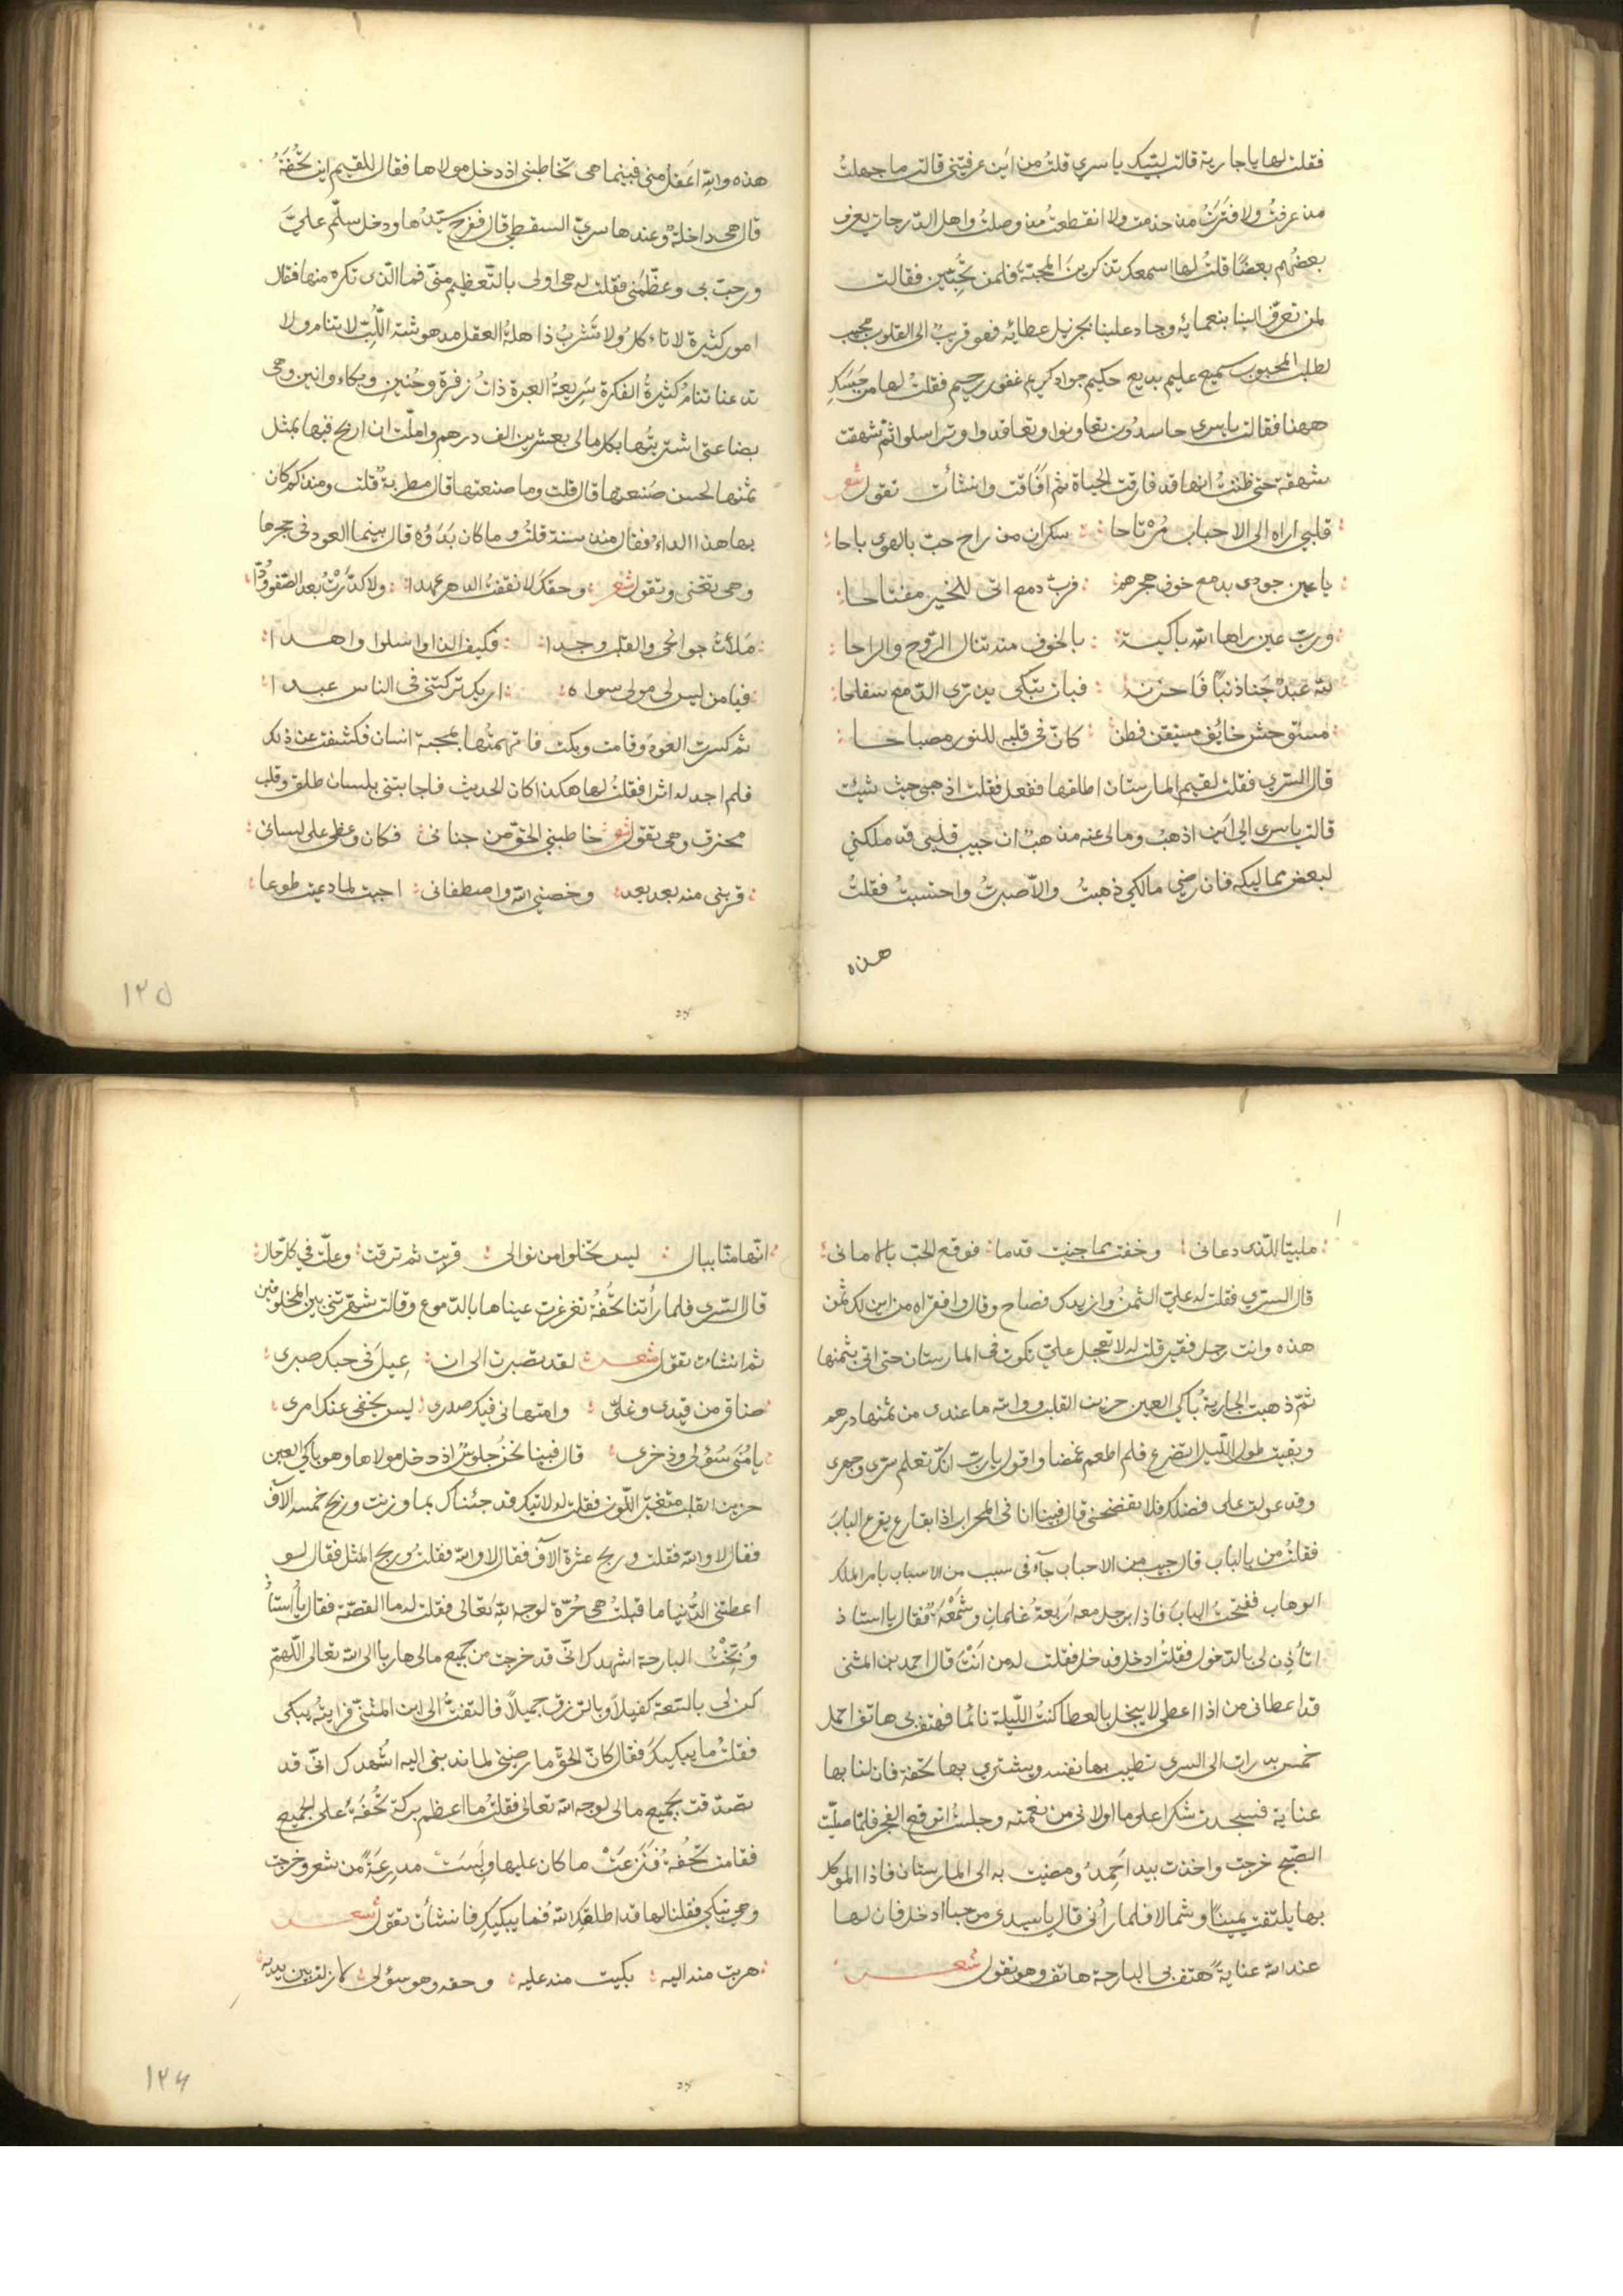 فقلت لها يا جارية قالت لبّيك يا سري قلتُ من اَين عرفتِني قالت ما جهلتُ
منذ عرفتُ ولا فترتُ منذ خدمت ولا انقطعتُ منذ وصلتُ واهل الدّرجات يعرف
بعضُهم بعضًا قلتُ لها اسمعكِ تذكرينَ المحبّة فلمن تُحِبّين فقالت
لمن تعرّف الينا بنعمائه وجاد علينا بجزيل عطائه فهو قريبٌ الى القلوب مجيب
لطلب المحبوب سميع عليم بديع حكيم جواد كريم غفور رحيم فقلتُ لها من حَبَسَكِ
ههنا فقالت يا سري حاسدُون تعاونوا وتعاقدوا وتراسلوا ثمّ شهقت
شهقة حتى ظننتُ انها قد فارقت الحياة ثم افَاقت وانشأت تقول شعر
قلبي اراه الى الاحباب مُرْتاحا سكران من راح حبّ بالهوى باحا
يا عين جودى بدمع خوف هجرهم فربّ دمع اتى للخير مفتاحا
وربّ عين راها الله باكية بالخوف منه تنال الرَّوح والراحا
لله عبدٌ جَنا ذنبًا فاحزنه فبات يبكى يذرّى الدّمع سفاحا
مستوحش خايف مستيقن فطن كانّ فى قلبه للنور مصباحا
قال السّري فقلت لقيم المارستان اطلقها ففعل فقلت اذهبى حيث شئت
قالت يا سرى الى اَين اذهبُ ومالى عنه مذهبٌ ان حبيب قلبى قد ملكني
لبعض مماليكه فان رضي مالكي ذهبتُ والّا صبرتُ واحتسبتُ فقلتُ
هذه
هذه واللهِ اعقل منى فبينما هى تخاطبنى اذ دخل مولاها فقال للقيم اين تُحْفَةُ
قال هى داخلة وعندها سريّ السقطي قال ففرح سيّدُها ودخل سلّم عليَّ
ورحبّ بى وعظّمنى فقلت له هى اولى بالتّعظيم منّى فما الّذى تكره منها فقال
امور كثيرة لا تاءكلُ ولا تَشْربُ ذاهلةُ العقل مدهوشة اللُّبّ لا تنام ولا
تدعنا ننامُ كثيرةُ الفكرة سَرِيعةُ العبرة ذاتُ زفرةٍ وحُنينٍ وبكاء وانين وهى
بضاعتى اشتريتُها بكل مالى بعشرين الف درهم واملّت ان اربح فيها بمثل
ثمنها لحسن صَنعتها قال قلت وما صنعتها قال مطربةٌ قلت ومنذ كم كان
بها هذا الداء فقال منذ سنة قلتُ وما كان بَدْؤه قال بينما العود فى حجرها
وهى تغنى وتقول شعر وحقكَ لا نقضتُ الدهر عهدا ولا كدّرْتُ بعد الصّفو وُدًّا
مَلأتَ جوانحى والقلب وجدا فكيف الذا واسلوا واهدا
فيا من ليس لى مولى سواه اريك تركتنى فى الناس عبدا
ثم كسرت العودَ وقامت وبكت فاتهمتُها بمحبة انسان فكشفت عن ذلك
فلم اجد له اثرا فقلتُ لها هكذا كان الحديث فاجابتنى بلسان طلق وقلب
محترق وهى تقول شعر خاطبنى الحقّ من جنانى فكان وعظى على لسانى
قربنى منه بعد بعد وخصني الله واصطفانى اجبت لما دعيت طوعا
١٢٥
ملبيًا للذى دعانى وخفت بما جنيت قدما فوقع الحبّ بالامانى
قال السرّي فقلت له عليّ الثمنُ وازيدك فصاح وقال وافقراه من اين لك ثمن
هذه وانت رجل فقير قلت له لا تعجل عليّ تكون فى المارستان حتى اتى بثمنها
ثمّ ذهبت الجارية باكى العين حزين القلب ووالله ما عندى من ثمنها درهم
وبقيت طول اللّيل اتضرع فلم اطعم غمضا واقول يا ربّ انك تعلم سرّى وجهرى
وقد عولت على فضلك فلا تفضحنى قال فبينا انا فى المحراب اذا بقارع يقرع البابَ
فقلتُ من بالباب قال حبيب من الاحباب جآء فى سبب من الاسباب بامر الملك
الوهاب ففتحتُ البابَ فاذا برجل معه اَربعةُ غلمانٍ وشَمْعَةٌ فقال يا استاذ
اتأذن لى بالدخول فقلتُ ادخل فدخل فقلت له من اَنْتَ قال احمد بن المثنى
قد اعطانى من اذا اعطى لا يبخل بالعطا كنتُ اللّيلة نائما فهتف بى هاتف احمل
خمس بدرات الى السرى تطيب بها نفسه ويشترى بها تحفة فان لنا بها
عناية فسجدت شكرا على ما اولانى من نعمته وجلستُ اتوقع الفجر فلما صلّيت
الصّبح خرجت واخذت بيد اَحمدَ ومضيت به الى المارستان فاذا الموكل
بها يلتفت يمينًا وشمالا فلما رأنى قال يا سيدى مرحبا ادخل فان لها
عند الله عناية هتف بى البارحة هاتف وهو يقول شعر
انّها منّا ببال ليس تخلوا من نوالى قربت ثم ترقت وعلّت فى كلّ حال
قال السّري فلما رأتنا تُحْفةُ تغرغرت عيناها بالدّموع وقالت شهرتنى بين المخلوقين
ثم انشات تقول شعر لقد تصبرت الى ان عِيلَ فى حبك صبرى
ضاق من قيدى وغلّى وامتهانى فيك صدرى ليس يخفى عنك امرى
يا مُنَى سُؤلى وذخرى قال فبينا نحنُ جلوسٌ اذ دخل مولاها وهو باكي العين
حزين القلب متغيّر اللّون فقلت له لا تبك قد جئناك بما وزنت وربح خمسة الآف
فقال لا والله فقلت وربح عشرة الآف فقال لا والله فقلتُ وربح المثل فقال لو
اعطتنى الدُّنيا ما قبلتُ هى حُرّة لوجه اللهِ تعالى فقلت له ما القصّة فقال يا اُستاذُ
وُبّخْتُ البارحة اشهدك انّى قد خرجت من جميع مالى هاربا الى الله تعالى اللّهمّ
كن لى بالسّعة كفيلاً وبالرزق جميلاً فالتفتُّ الى ابن المثنىّ فرايتُه يبكى
فقلتُ ما يبكيكَ فقال كانّ الحقّ ما رضينى لما ندبنى اليه اشهدك انّى قد
تصدّقت بجميع مالى لوجه الله تعالى فقلتُ ما اعظم بركة تُحْفَة على الجميع
فقامت تُحْفةُ فنَزعَتْ ما كان عليها ولبِسَتْ مدرِعَةً من شعر وخرجت
وهى تبكى فقلنا لها قد اطلقكِ الله فما يبكيكِ فانشأت تقول شعر
هربت منه اليه بكيت منه عليه وحقه وهو سؤلى لا زلت بين يديه
١٢٦